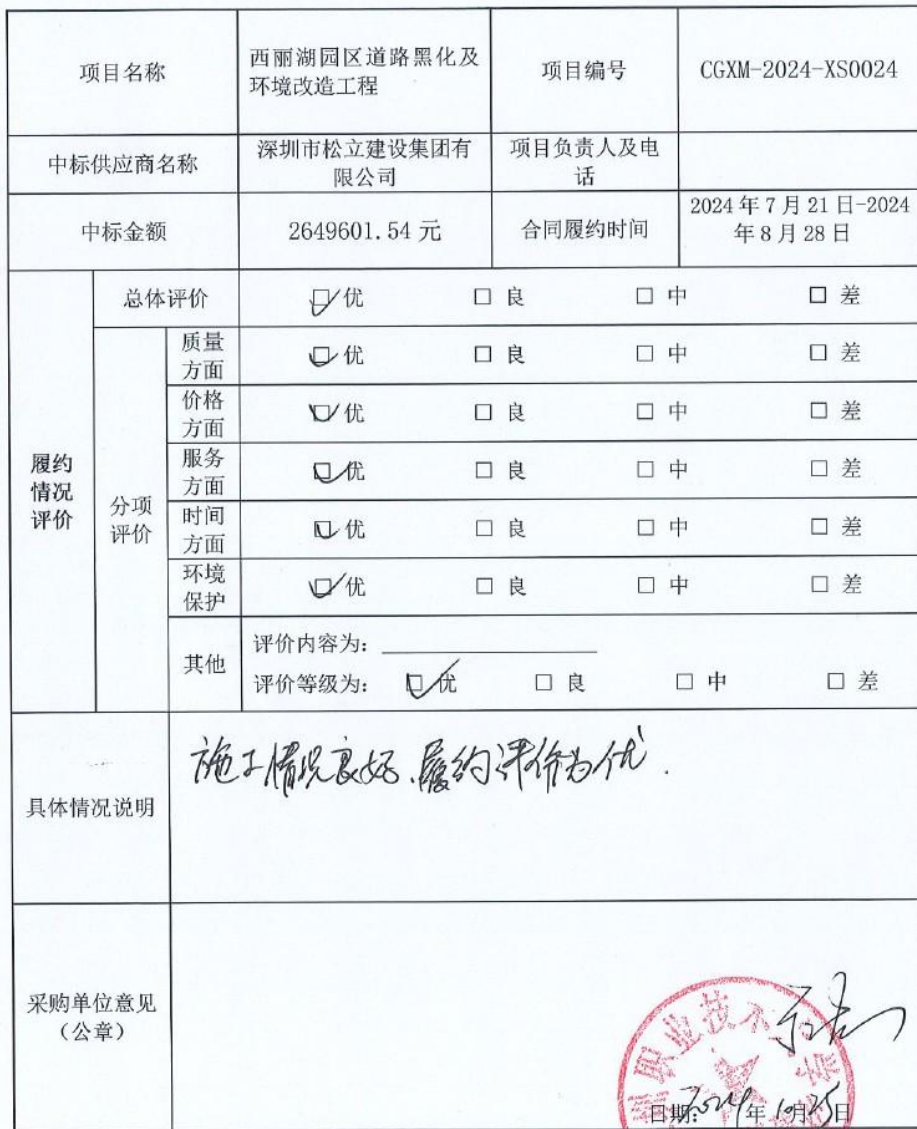 项目名称
西丽湖园区道路黑化及
环境改造工程
项目编号
CGXM-2024-XS0024
中标供应商名称
深圳市松立建设集团有
限公司
项目负责人及电
话
中标金额
2649601.54 元
合同履约时间
2024 年 7 月 21 日-2024
年 8 月 28 日
履约
情况
评价
总体评价
☑优 □ 良 □ 中 □ 差
分项
评价
质量
方面
☑优 □ 良 □ 中 □ 差
价格
方面
☑优 □ 良 □ 中 □ 差
服务
方面
☑优 □ 良 □ 中 □ 差
时间
方面
☑优 □ 良 □ 中 □ 差
环境
保护
☑优 □ 良 □ 中 □ 差
其他
评价内容为：
评价等级为： ☑优 □ 良 □ 中 □ 差
具体情况说明
施工情况良好、履约评价为优.
采购单位意见
（公章）
职业技术
日期：2024年10月25日